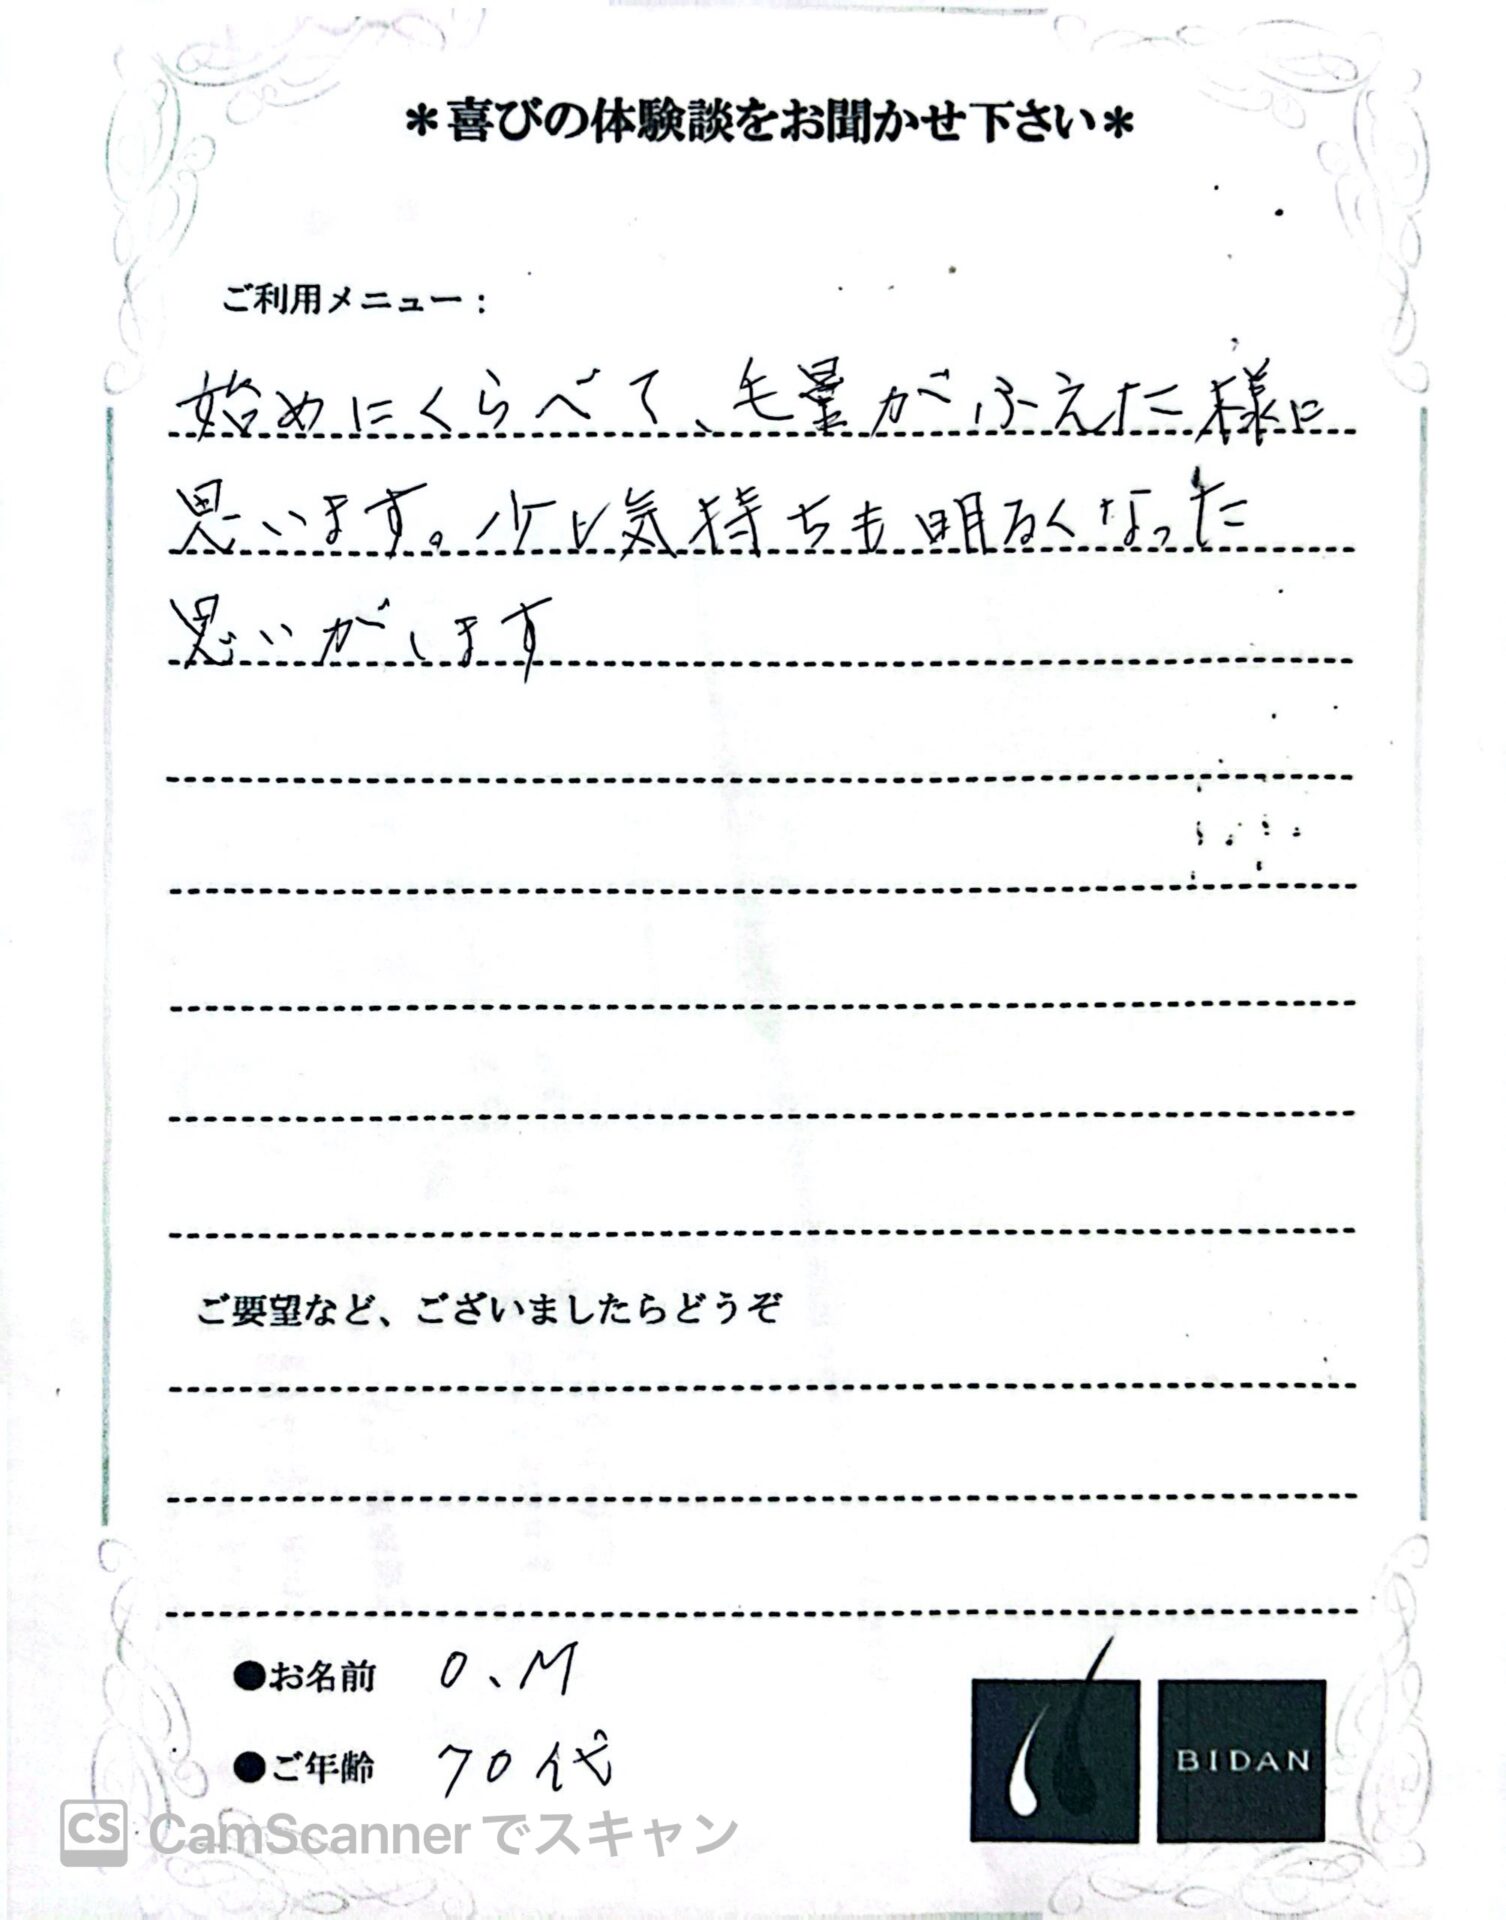 ＊喜びの体験談をお聞かせ下さい＊
ご利用メニュー：
始めにくらべて、毛量がふえた様に
思います。少し気持ちも明るくなった
思いがします
ご要望など、ございましたらどうぞ
●お名前 O、M
●ご年齢 70代
BIDAN
CS CamScannerでスキャン